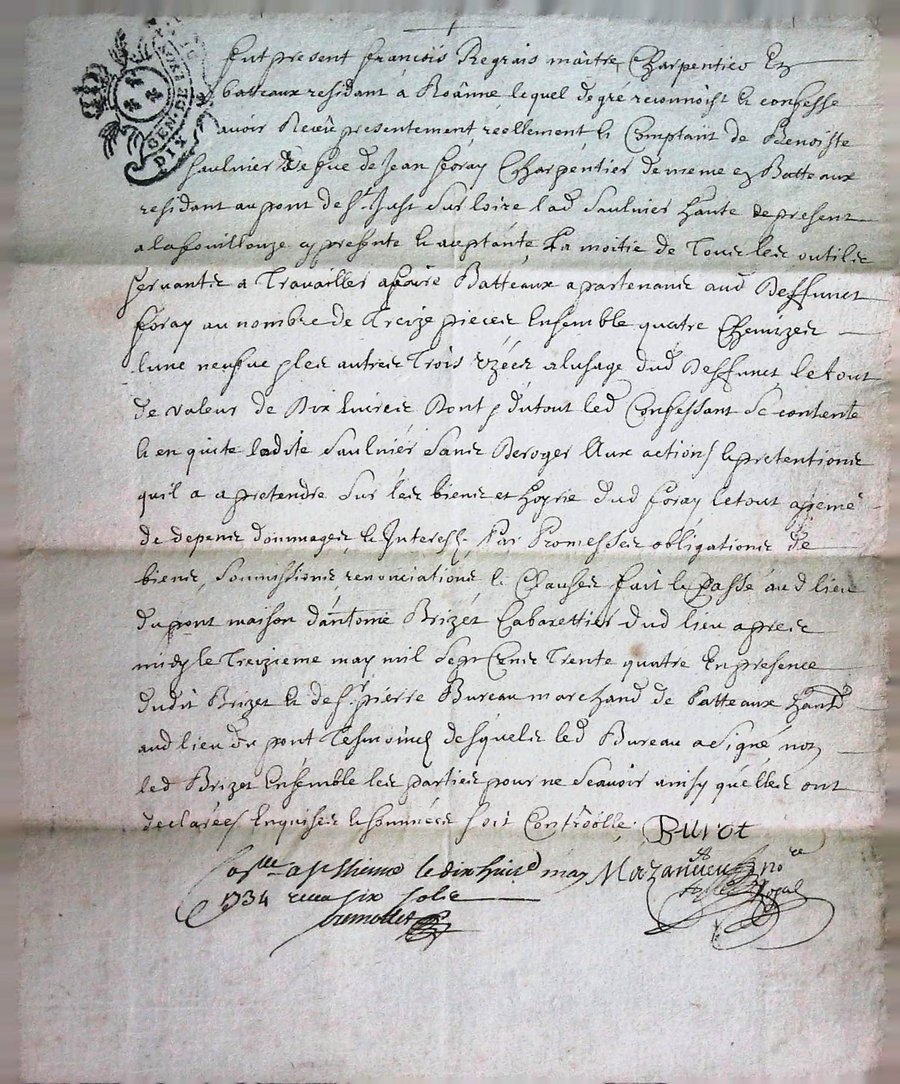 GEN. DE
DIX
Fut present francois Regrais maitre Charpentier En
batteaux residant a Roanne lequel de gré reconnoist & confesse
avoir Receu presentement reellement & Comptant de Benoiste
Saulnier vefve de Jean foray Charpentier de meme en Batteaux
residant au pont de St Just sur loire lad Saulnier hante de present
a la fouillouze cy presente & aceptante La moitie de Tous les outils
servants a Travailler a faire Batteaux apartenans aud Deffunct
foray au nombre de Treize pieces Ensemble quatre Chemizes
lune neufve & les autres Trois uzées a lusage dud Deffunct le tout
de valeur de Dix Livres Dont & du tout led Confessant se contente
& en quite ladite Saulnier sans Deroger Aux actions & pretentions
quil a a pretendre sur les biens et hoyrie dud foray le tout a peine
de depens dommages & Interests Par Promesses obligations de
biens, soumissions, renonciations & Clauses fait & Passé aud lieu
du pont maison dantoine Brizet Cabarettier dud lieu apres
midy le Treizieme may mil sept Cens Trente quatre En presence
dudit Brizet & de Sr pierre Bureau marchand de batteaux hantd
aud lieu du pont Tesmoins desquels led Bureau a signé non
led Brizet Ensemble les parties pour ne scavoir ainsy quelles ont
declarées Enquises & sommées soit Controolle. Burot
Conlle a le dix huict may Mazancieu nore
1734 receu six sols Royal